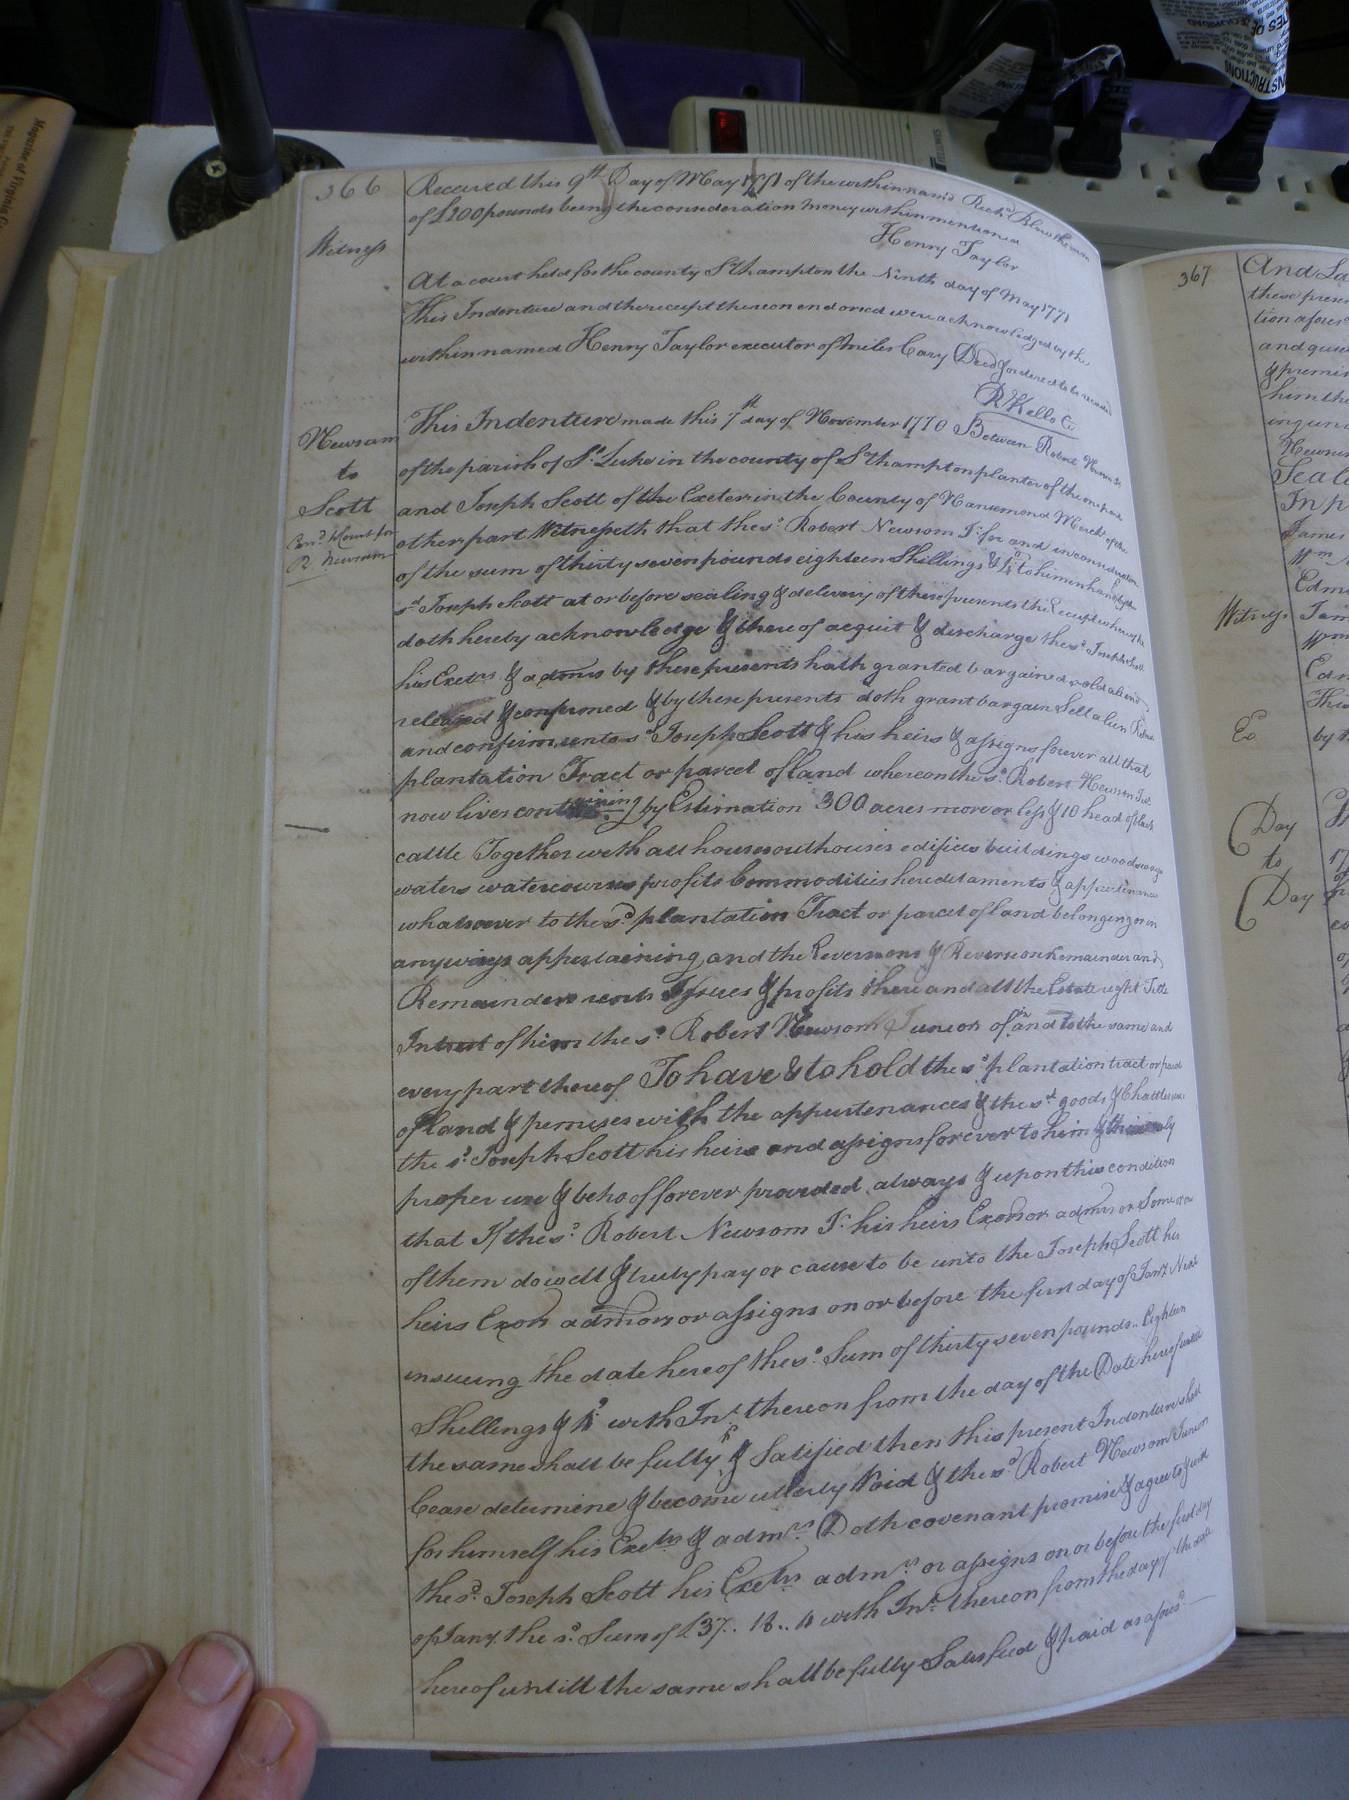 Magazine of Virginia
INSTRUCTIONS
366
Received this 9th Day of May 1771 of the within nam'd Richd
of £200 pounds being the consideration money within mentioned
Henry Taylor
Witness
At a court held for the county Sthampton the Ninth day of May 1771
This Indenture and the receipt thereon endorsed were acknowledged by the
within named Henry Taylor executor of miles Cary Decd & ordered to be recorded
R Kello Cc
Newsam
to
Scott
R Newsom
This Indenture made this 7th day of November 1770 Between Robert Newsom Jr
of the parish of St Luke in the county of Sthampton planter of the one part
and Joseph Scott of the Exeter in the County of Nansemond Merct of the
other part Witnesseth that the sd Robert Newsom Jr for and in consideration
of the sum of thirty seven pounds eighteen Shillings & to him in hand by the
sd Joseph Scott at or before sealing & delivery of these presents the Receipt whereof he
doth hereby acknowledge & thereof acquit & discharge the sd Joseph Scott
his Exetrs & admrs by these presents hath granted bargained sold aliend
released & confirmed & by these presents doth grant bargain Sell alien Release
and confirm unto sd Joseph Scott & his heirs & assigns forever all that
plantation Tract or parcel of land whereon the sd Robert Newsom Jur
now lives containing by Estimation 300 acres more or less & 10 head of black
cattle Together with all houses outhouses edifices buildings woods ways
waters watercourses profits Commodities hereditaments & appurtenances
whatsoever to the sd plantation Tract or parcel of land belonging or in
anyways appertaining and the Reversions & Reversion Remainder and
Remainders rents Issues & profits there and all the Estate right Title
Intrest of him the sd Robert Newsom Junior of in and to the same and
every part thereof To have & to hold the sd plantation tract or parcel
of land & pemises with the appurtenances & the sd goods & Chattles unto
the sd Joseph Scott his heirs and assigns forever to him & only
proper use & behoof forever provided always & upon this condition
that If the sd Robert Newsom Jr his heirs Exors or admrs or Some or one
of them do well & truly pay or cause to be unto the Joseph Scott his
heirs Exors admors or assigns on or before the first day of Jany Next
insuing the date hereof the sd Sum of thirty seven pounds .. Eighteen
Shillings & with Int thereon from the day of the Date hereof untill
the same shall be fully & Satified then this present Indenture shall
Cease determine & become utterly Void & the sd Robert Newsom Junior
for himself his Exetrs & admrs Doth covenant promise & agree to & with
the sd Joseph Scott his Exetrs admrs or assigns on or before the first day
of Jany the sd Sum of £37 .. 18 .. with Int thereon from the day of the date
hereof untill the same shall be fully Satisfied & paid as aforesd
367
And La
these presen
tion afores
and quie
& premis
him the
Newsum
Seale
In p
James
Wm
Edm
Witness
Jam
Wm
Edm
This
by
Day
to
Day
17